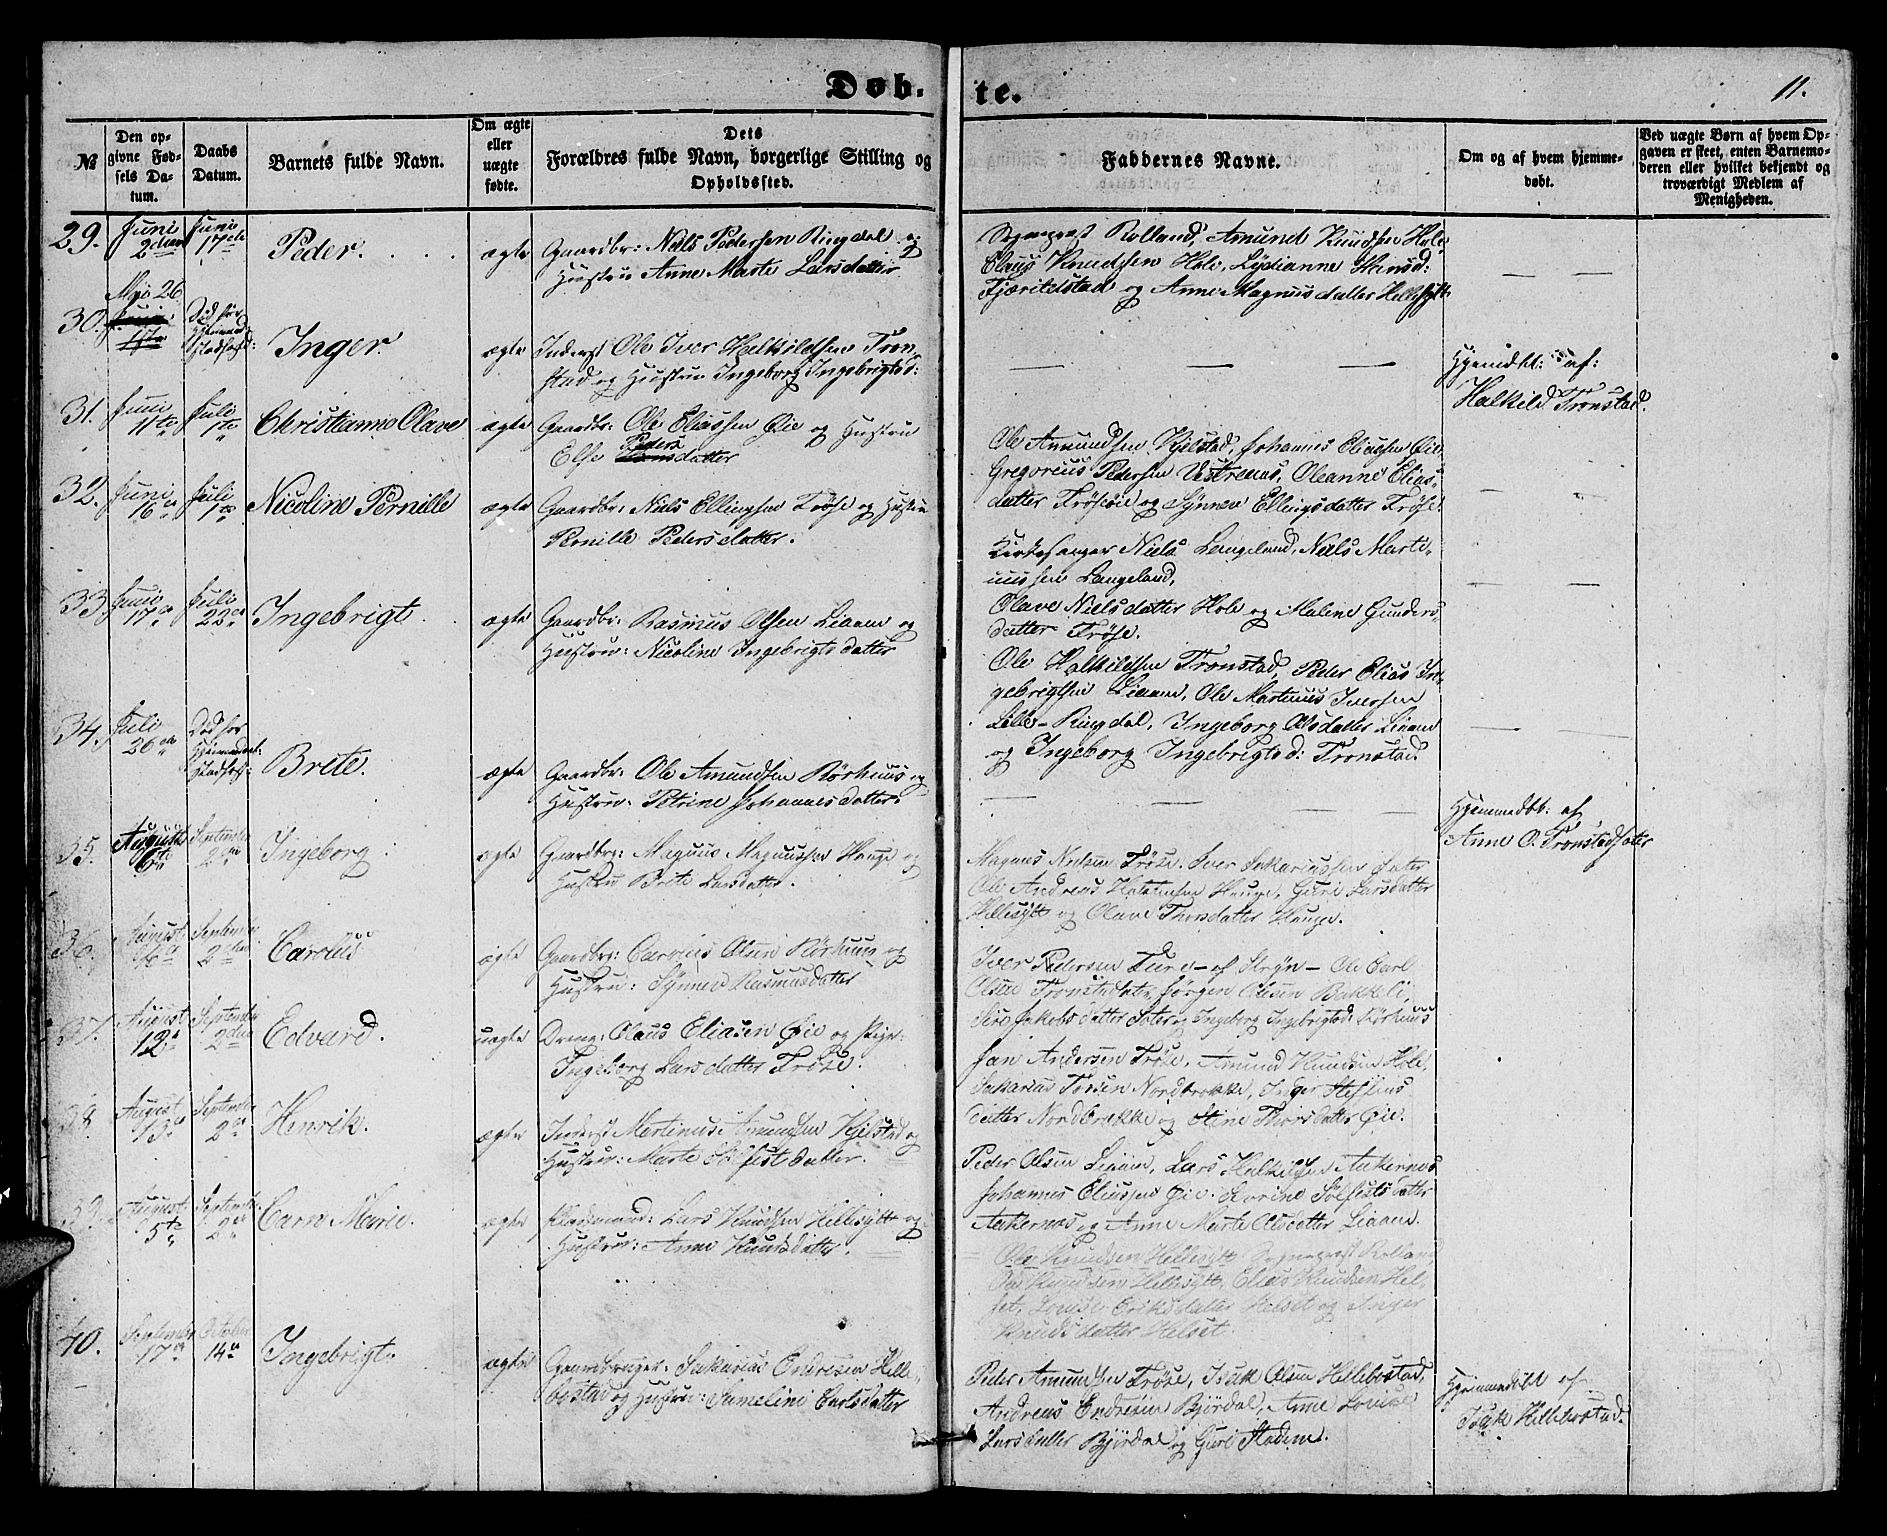 Døb-
te.
11.
№
Den op-
givne Fød-
sels Da-
tum.
Daabs
Datum.
Barnets fulde Navn.
Om ægte
eller
uægte
fødte.
Dets
Forældres fulde Navn, borgerlige Stilling og
Opholdssted.
Faddernes Navne.
Om og af hvem hjemme-
døbt.
Ved uægte Børn af hvem Op-
gaven er skeet, enten Barnemo-
deren eller hvilket bekjendt og
troværdigt Medlem af
Menigheden.
29.
Juni
2den
Juni
17de
Peder.
ægte
Gaardbr: Niels Pedersen Ringdal og
Hustru Anne Marte Larsdatter
Sogneprest Rolland, Amund Knudsen Hole
Olaus Knudsen Hole, Lydianne Hansd:
Fjæritelstad og Anne Magnusdatter Hellesylt
30.
Mai 26
Juni
1ste
Død før
Stadfest:
Inger.
ægte
Inderst Ole Iver Halkildsen Tron-
stad og Hustru Ingeborg Ingebrigtsd:
Hjemdbt: af:
Halkild Tronstad.
31.
Juni
11te
Juli
1ste
Christianne Olave
ægte
Gaardbr: Ole Eliassen Øie og Hustru
Peders
Else Hansdatter
Ole Amundsen Kjelstad, Johannes Eliassen Øie
Gregorius Pedersen Vestrenes, Oleanne Elias-
datter Frøsøie og Synnev Ellingsdatter Frøse.
32.
Juni
16de
Juli
1ste
Nicoline Pernille
ægte
Gaardbr: Niels Ellingsen Frøse og Hustru
Pernille Pedersdatter.
Kirkesanger Niels Langeland, Niels Marti-
nussen Langeland,
Olave Nielsdatter Hole og Malene Gunders-
datter Frøse.
33.
Juni
17de
Juli
22de
Ingebrigt.
ægte
Gaardbr: Rasmus Olsen Liaam og
Hustru: Nicoline Ingebrigtsdatter
Ole Halkildsen Tronstad, Peder Elias In-
gebrigtsen Liaam, Ole Martinus Iversen
Lille-Ringdal, Ingeborg Olsdatter Liaam
og Ingeborg Ingebrigtsd: Tronstad
34.
Juli
26de
Død før
Stadfest:
Brete.
ægte
Gaardbr: Ole Amundsen Rørhuus og
Hustru: Petrine Johannesdatter.
Hjemmedbt: af
Anne O. Tronstadsæter
35.
August
6te
September
2den
Ingeborg
ægte
Gaardbr: Magnus Magnussen Hauge og
Hustru Brete Larsdatter.
Magnus Nielsen Frøse. Iver Sakariassen
Ole Andreas Hauge, Guri Larsdatter
Hellesylt og Olave Thorsdatter Hauge.
36.
August
September
2den
Carolus
ægte
Gaardbr: Carolus Olsen Rørhuus og
Hustru: Synnev Rasmusdatter
Iver Pedersen Ture - af Stryn - Ole Carl
Olsen Tronstadsætr, Jørgen Olsen Bakkeli,
Jakobsdatter Sæter og Ingeborg Ingebrigtsd: Rørhuus
37.
August
12te
September
2den
Edvard.
uægte
Dreng: Olaus Eliasen Øie og Pige:
Ingeborg Larsdatter Frøse.
Jan Andersen Frøse, Amund Knudsen Hole,
Sakarias Tosen Nordbrekke, Inger Steffens
datter Nordbrekke og Stine Thorsdatter Øie.
38.
August
13de
September
2den
Henrik.
ægte
Inderst Martinus Amundsen Kjelstad og
Hustru: Marte Sølfestdatter.
Peder Olsen Liaam, Lars Halkildsen Aakernes
Johannes Eliassen Øie. Karine Sølfestsdatter
Aakernes og Anne Marte Olsdatter Liaam.
39.
August
5te
September
2den
Carn Marie.
ægte
Pladsmand: Lars Knudsen Hellesylt og
Hustru: Anne Knudsdatter.
Ole Knudsen Hellesylt, Sogneprest Rolland,
Knudsen Hellesylt, Elias Knudsen Hel-
set, Lovise Eriksdatter Helset og Inger
Knudsdatter Helset.
40.
September
17de
October
14de
Ingebrigt.
ægte
Gaardbruger: Sakarias Endresen Hille-
bostad og Hustru: Sameline Carlsdatter
Peder Amundsen Frøse, Isak Olsen Hillebostad,
Andreas Endresen Bjørdal, Anne Lovise
Larsdatter Bjørdal og Guri Stadem.
Hjemmedøbt af
Isak Hillebostad.